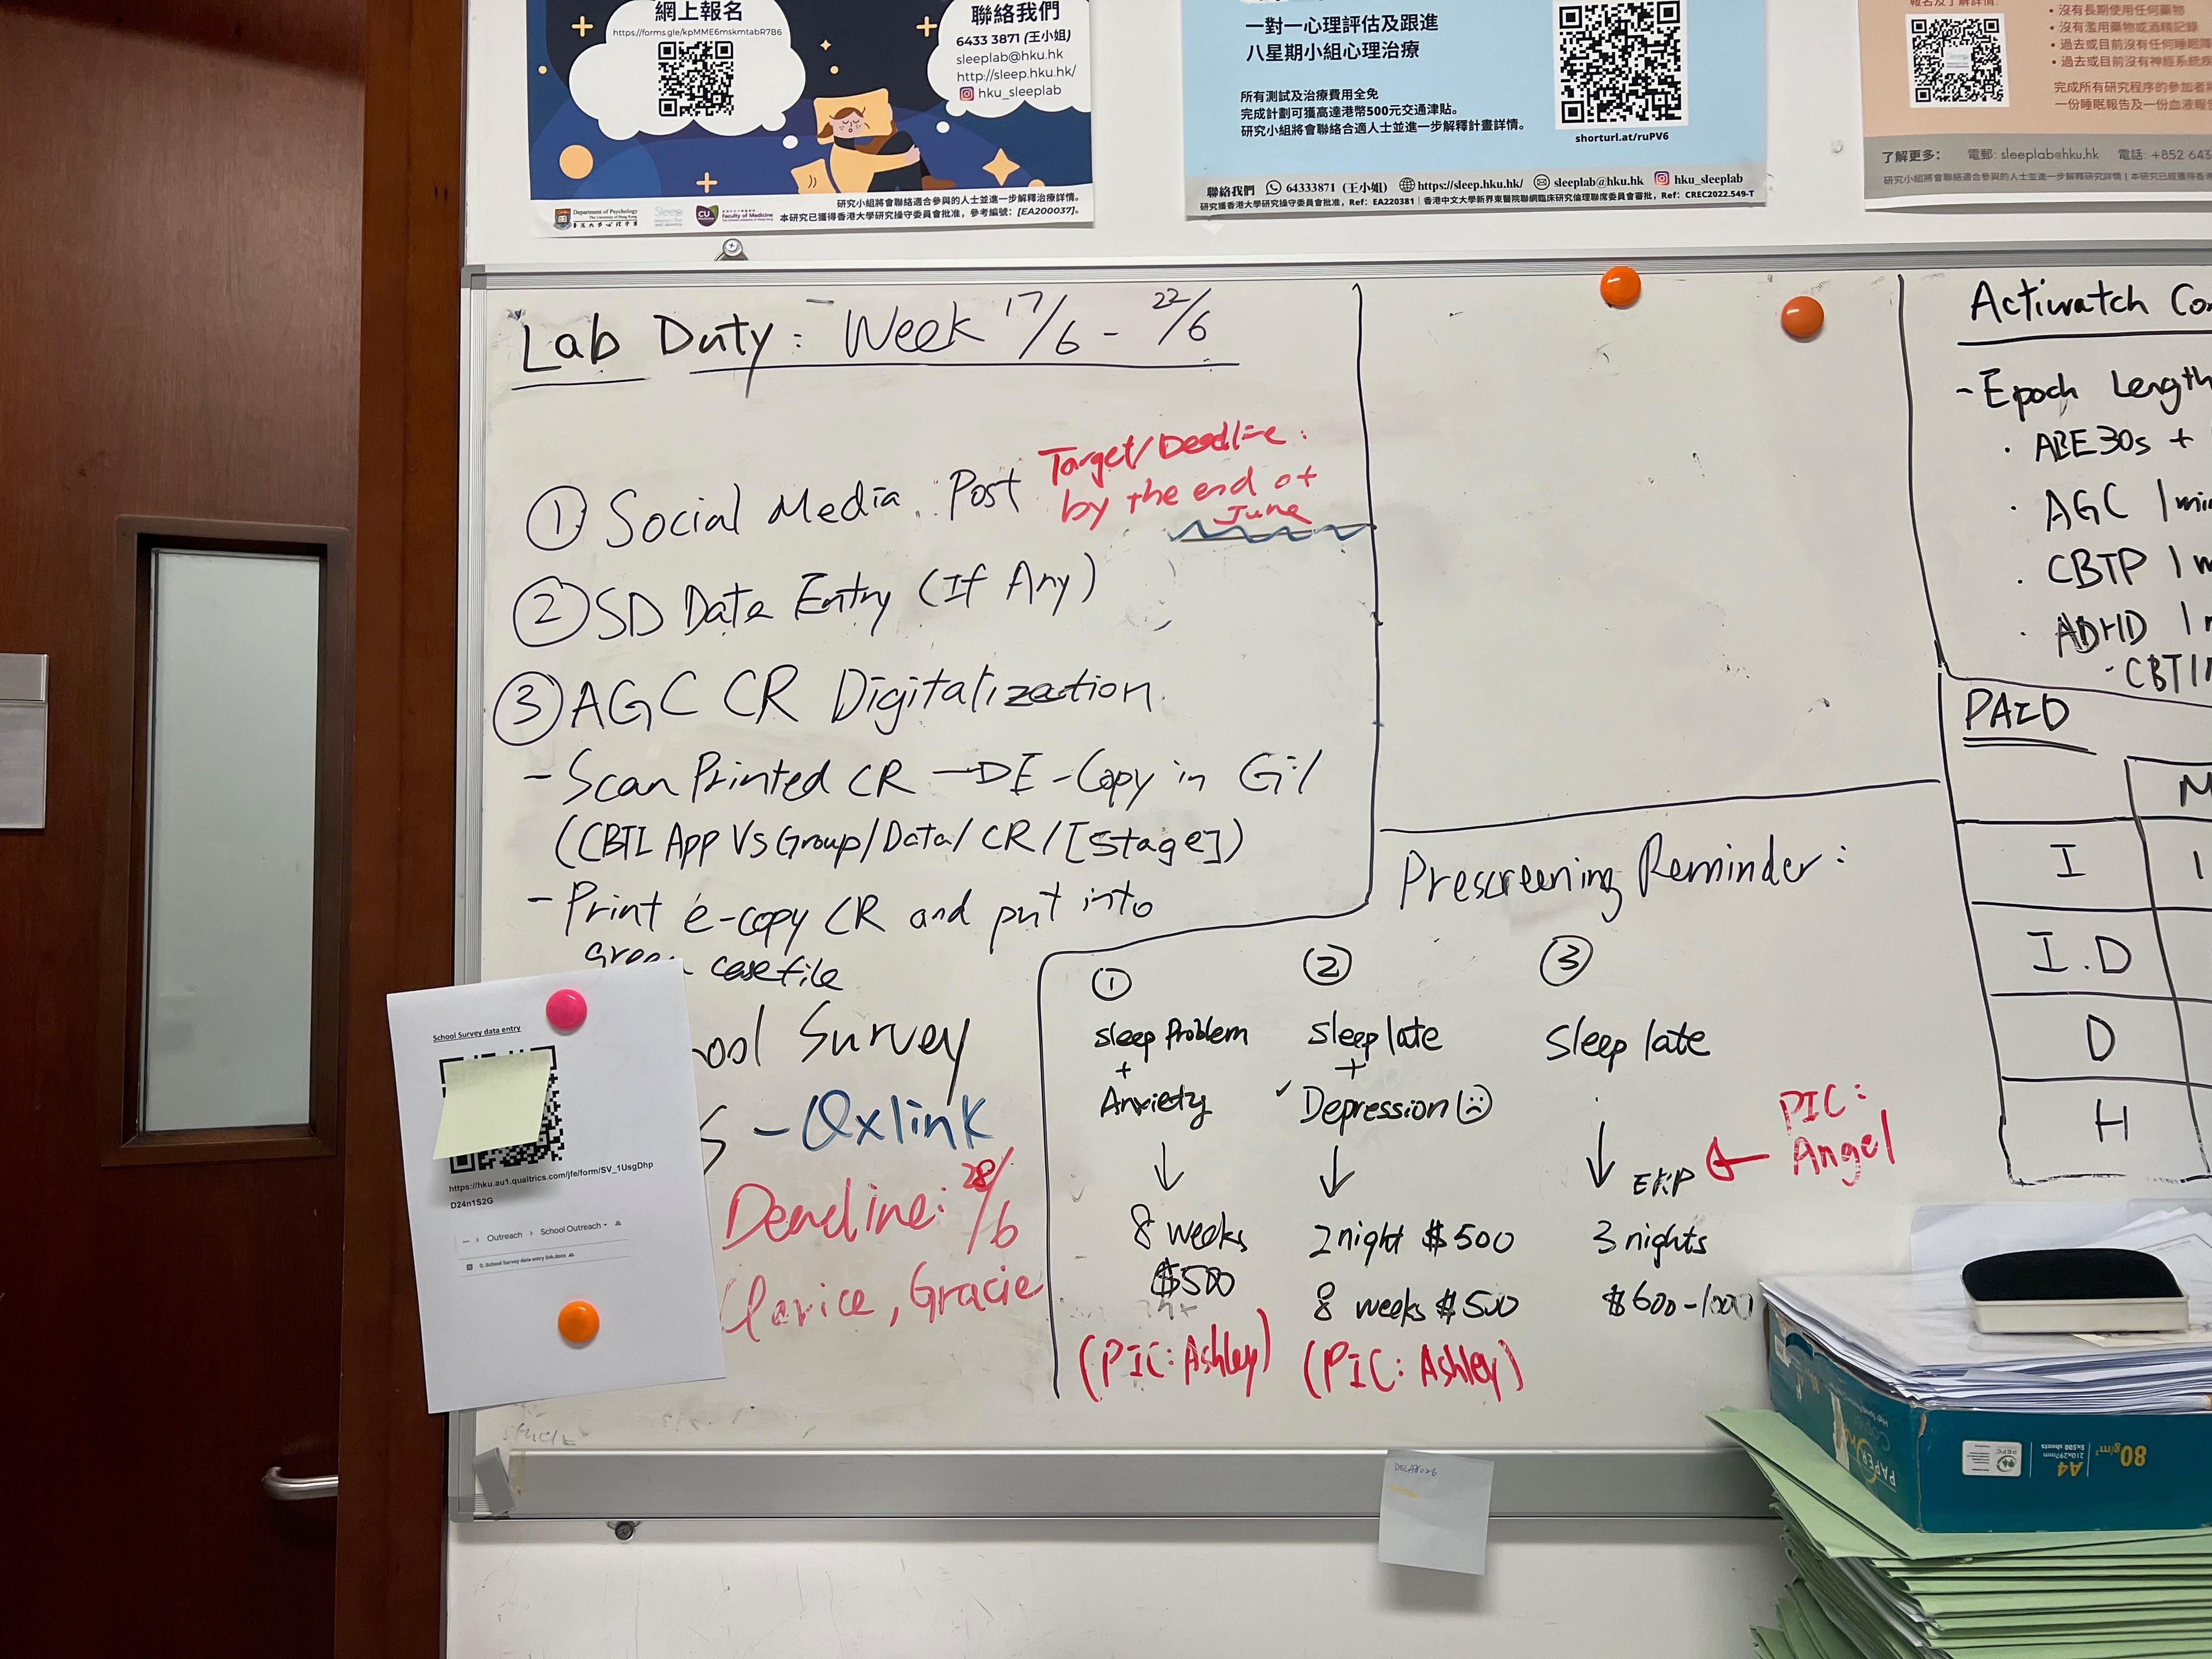 網上報名
https://forms.gle/kpMME6mskmtabR7B6
聯絡我們
6433 3871 (王小姐)
sleeplab@hku.hk
http://sleep.hku.hk/
hku_sleeplab
研究小組將會聯絡適合參與的人士並進一步解釋治療詳情。
本研究已獲得香港大學研究操守委員會批准，參考編號：[EA200037]。
Department of Psychology
The University of Hong Kong
香港大學心理學系
Sleep
CU
Faculty of Medicine
一對一心理評估及跟進
八星期小組心理治療
所有測試及治療費用全免
完成計劃可獲高達港幣500元交通津貼。
研究小組將會聯絡合適人士並進一步解釋計畫詳情。
shorturl.at/ruPV6
聯絡我們 64333871 (王小姐) https://sleep.hku.hk/ sleeplab@hku.hk hku_sleeplab
研究獲香港大學研究操守委員會批准，Ref：EA220381｜香港中文大學新界東醫院聯網臨床研究倫理聯席委員會審批，Ref：CREC2022.549-T
報名及了解詳情:
• 沒有長期使用任何藥物
• 沒有濫用藥物或酒精記錄
• 過去或目前沒有任何睡眠障
• 過去或目前沒有神經系統疾
完成所有研究程序的參加者將
一份睡眠報告及一份血液報
了解更多： 電郵: sleeplab@hku.hk 電話: +852 643
研究小組將會聯絡合適參與的人士並進一步解釋研究詳情 | 本研究已獲得香港
Lab Duty: Week 17/6 - 22/6
① Social Media Post
Target/Deadline:
by the end of
June
② SD Data Entry (If Any)
③ AGC CR Digitalization
- Scan Printed CR → E-Copy in G:\
(CBTI App Vs Group/Data/CR/[Stage])
- Print e-copy CR and put into
green casefile
ool Survey
S - Qxlink
Deadline: 28/6
Clarice, Gracie
School Survey data entry
https://hku.au1.qualtrics.com/jfe/form/SV_1UsgDhp
D24n1S2G
Outreach > School Outreach
0. School Survey data entry link.docx
Prescreening Reminder:
①
Sleep Problem
+
Anxiety
↓
8 weeks
$500
(PIC: Ashley)
②
Sleep late
+
✓ Depression ☹
↓
2 night $500
8 weeks $500
(PIC: Ashley)
③
Sleep late
↓
3 nights
$600-1000
PIC:
Angel
Actiwatch Co
- Epoch Length
· ABE 30s +
· AGC 1 mi
· CBTP 1 m
· ADHD 1
· CBTI
PAID
M
I
I.D
D
H
80g/m²
A4
210x297mm
5x500 sheets
PEFC
PAPER